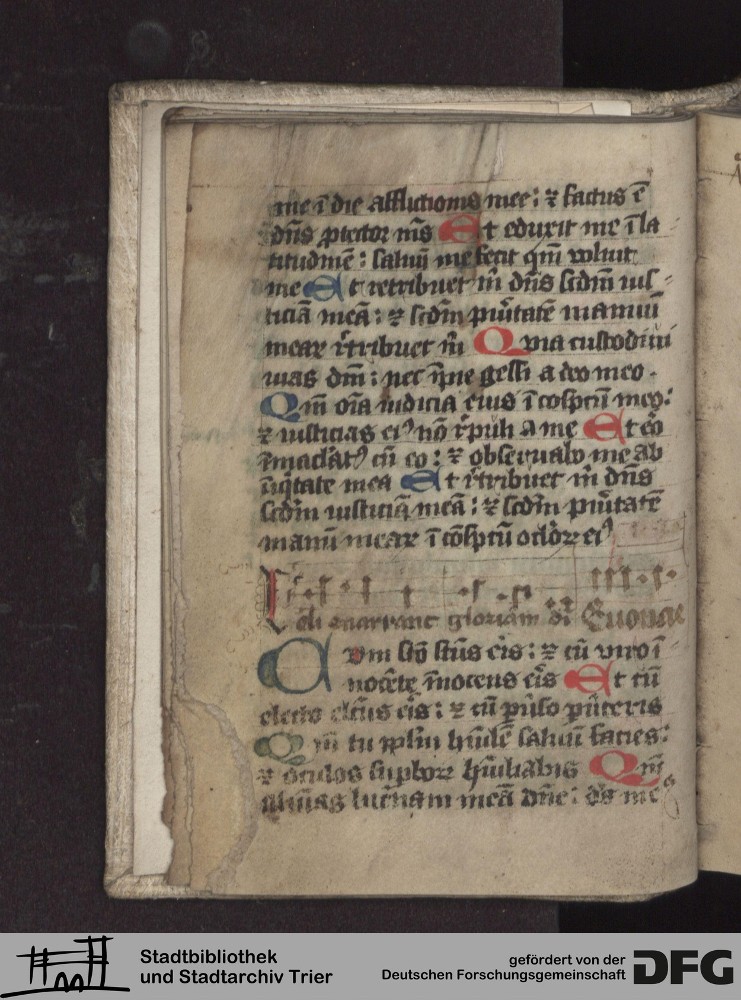 me ī die afflictionis mee: ⁊ factus ē
dn̄s ꝓtector m̄s Et eduxit me ī la
titudinē: saluū me fecit qm̄ voluit
me Et retribuet m̄ dn̄s scdm̄ ius-
ticiā meā: ⁊ scdm̄ puͥtatē manuū
mearꝝ rͤtribuet m̄ Quia custodiui
uias dm̄: nec īpie gessi a deo meo.
Qm̄ oīa iudicia eius ī cōspctū meo:
⁊ iusticias eiꝰ nō rͤpuli a me Et eͦo
īmaclatꝰ cū eo: ⁊ obseruabo me ab
īiqͥtate mea Et rͤtribuet m̄ dn̄s
scdm̄ iusticiā meā: ⁊ scdm̄ puͥtatē
manū mearꝝ ī cōspctū oclōꝝ eiꝰ
Celi enarrant gloriam di Euouae
Cum scō scūs eͥs: ⁊ cū viro ī-
nocēte īnocens eͥs Et cū
electo elcūs eͥs: ⁊ cū puͥso puͥteris
Qm̄ tu pplm̄ hūilē saluū facies:
⁊ oculos supboꝝ hūiliabis Qm̄
illuīas lucͥnam meā dn̄e: ds̄ me
Stadtbibliothek
und Stadtarchiv Trier
gefördert von der
Deutschen Forschungsgemeinschaft
DFG